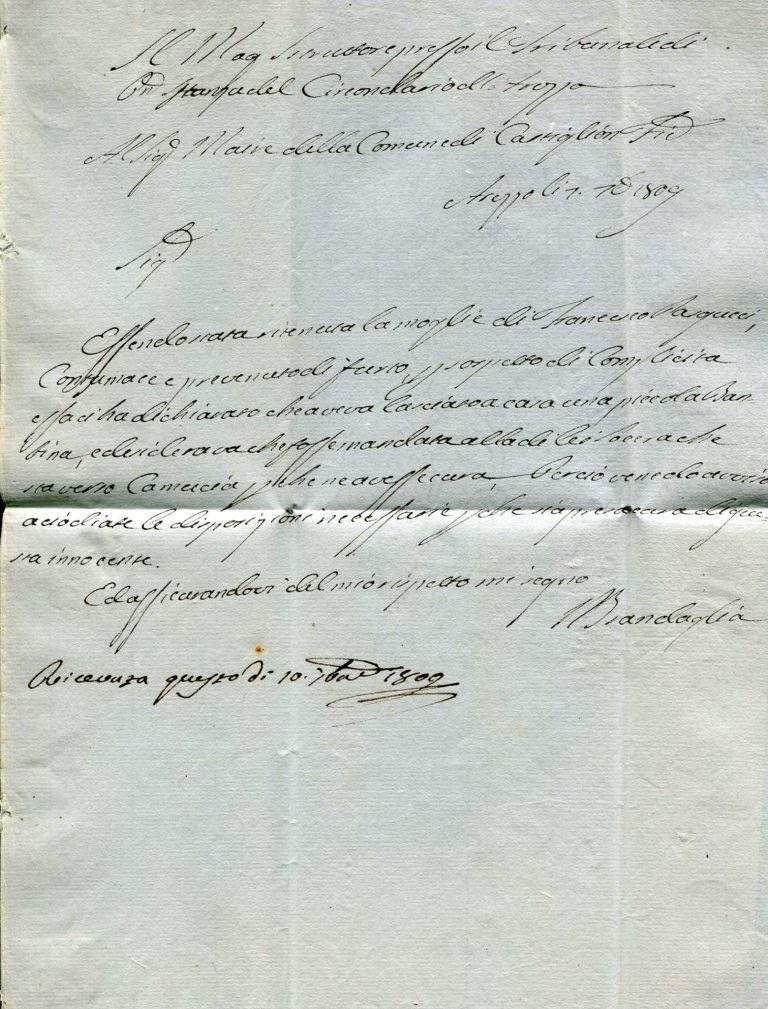 Il Mag. Istruttore presso il Tribunale di
Pr. Istanza del Circondario di Arezzo
Al Sigr. Maire della Comune di Castiglion Fio
Arezzo li 7. 7bre 1809
Sigr.
Essendo stata ritenuta la moglie di Francesco Pasqucci,
Contumace e prevenuto di furto, p sospetto di Complicita
essa ci ha dichiarato che aveva lasciato a casa una piccola Bam
bina, e desiderava che fosse mandata alla di lei socera che
sta verso Camucia p che ne avesse cura. Perciò ve ne do avviso
acciò diate le disposizioni necessarie p che sia presa cura di que-
sta innocente.
Ed assicurandovi del mio rispetto mi segno
Brandaglia
Ricevuta questo di 10. 7bre 1809